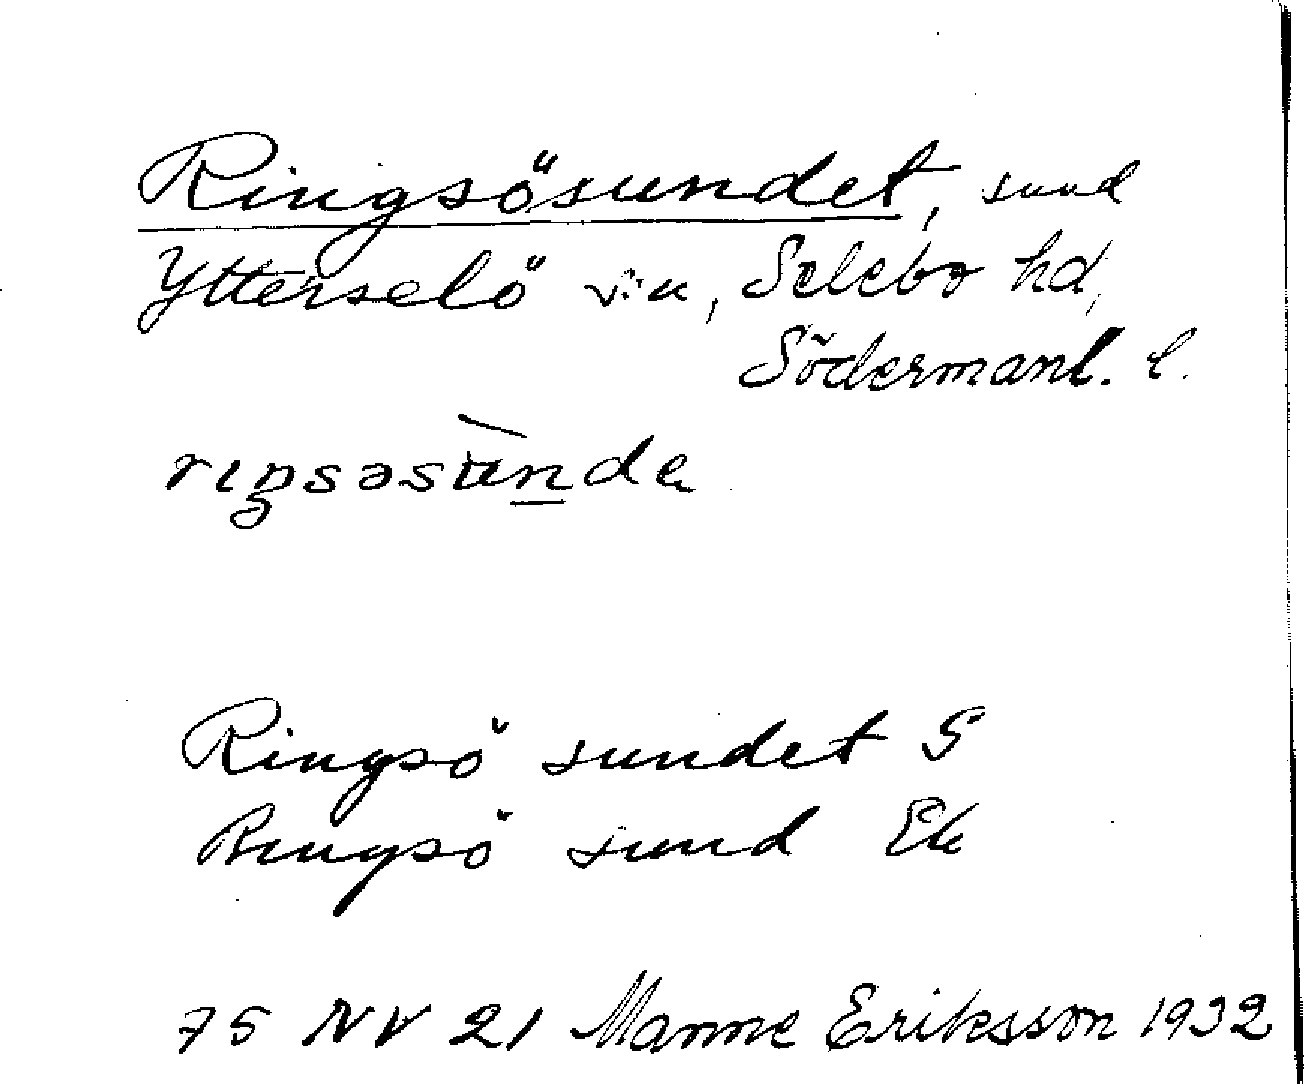 Ringsösundet, sund
Ytterselö s:n, Selebo hd,
Södermanl. l.
rıŋsəsùnde
Ringsö sundet S
Ringsö sund Ek
75 NV 21 Manne Eriksson 1932